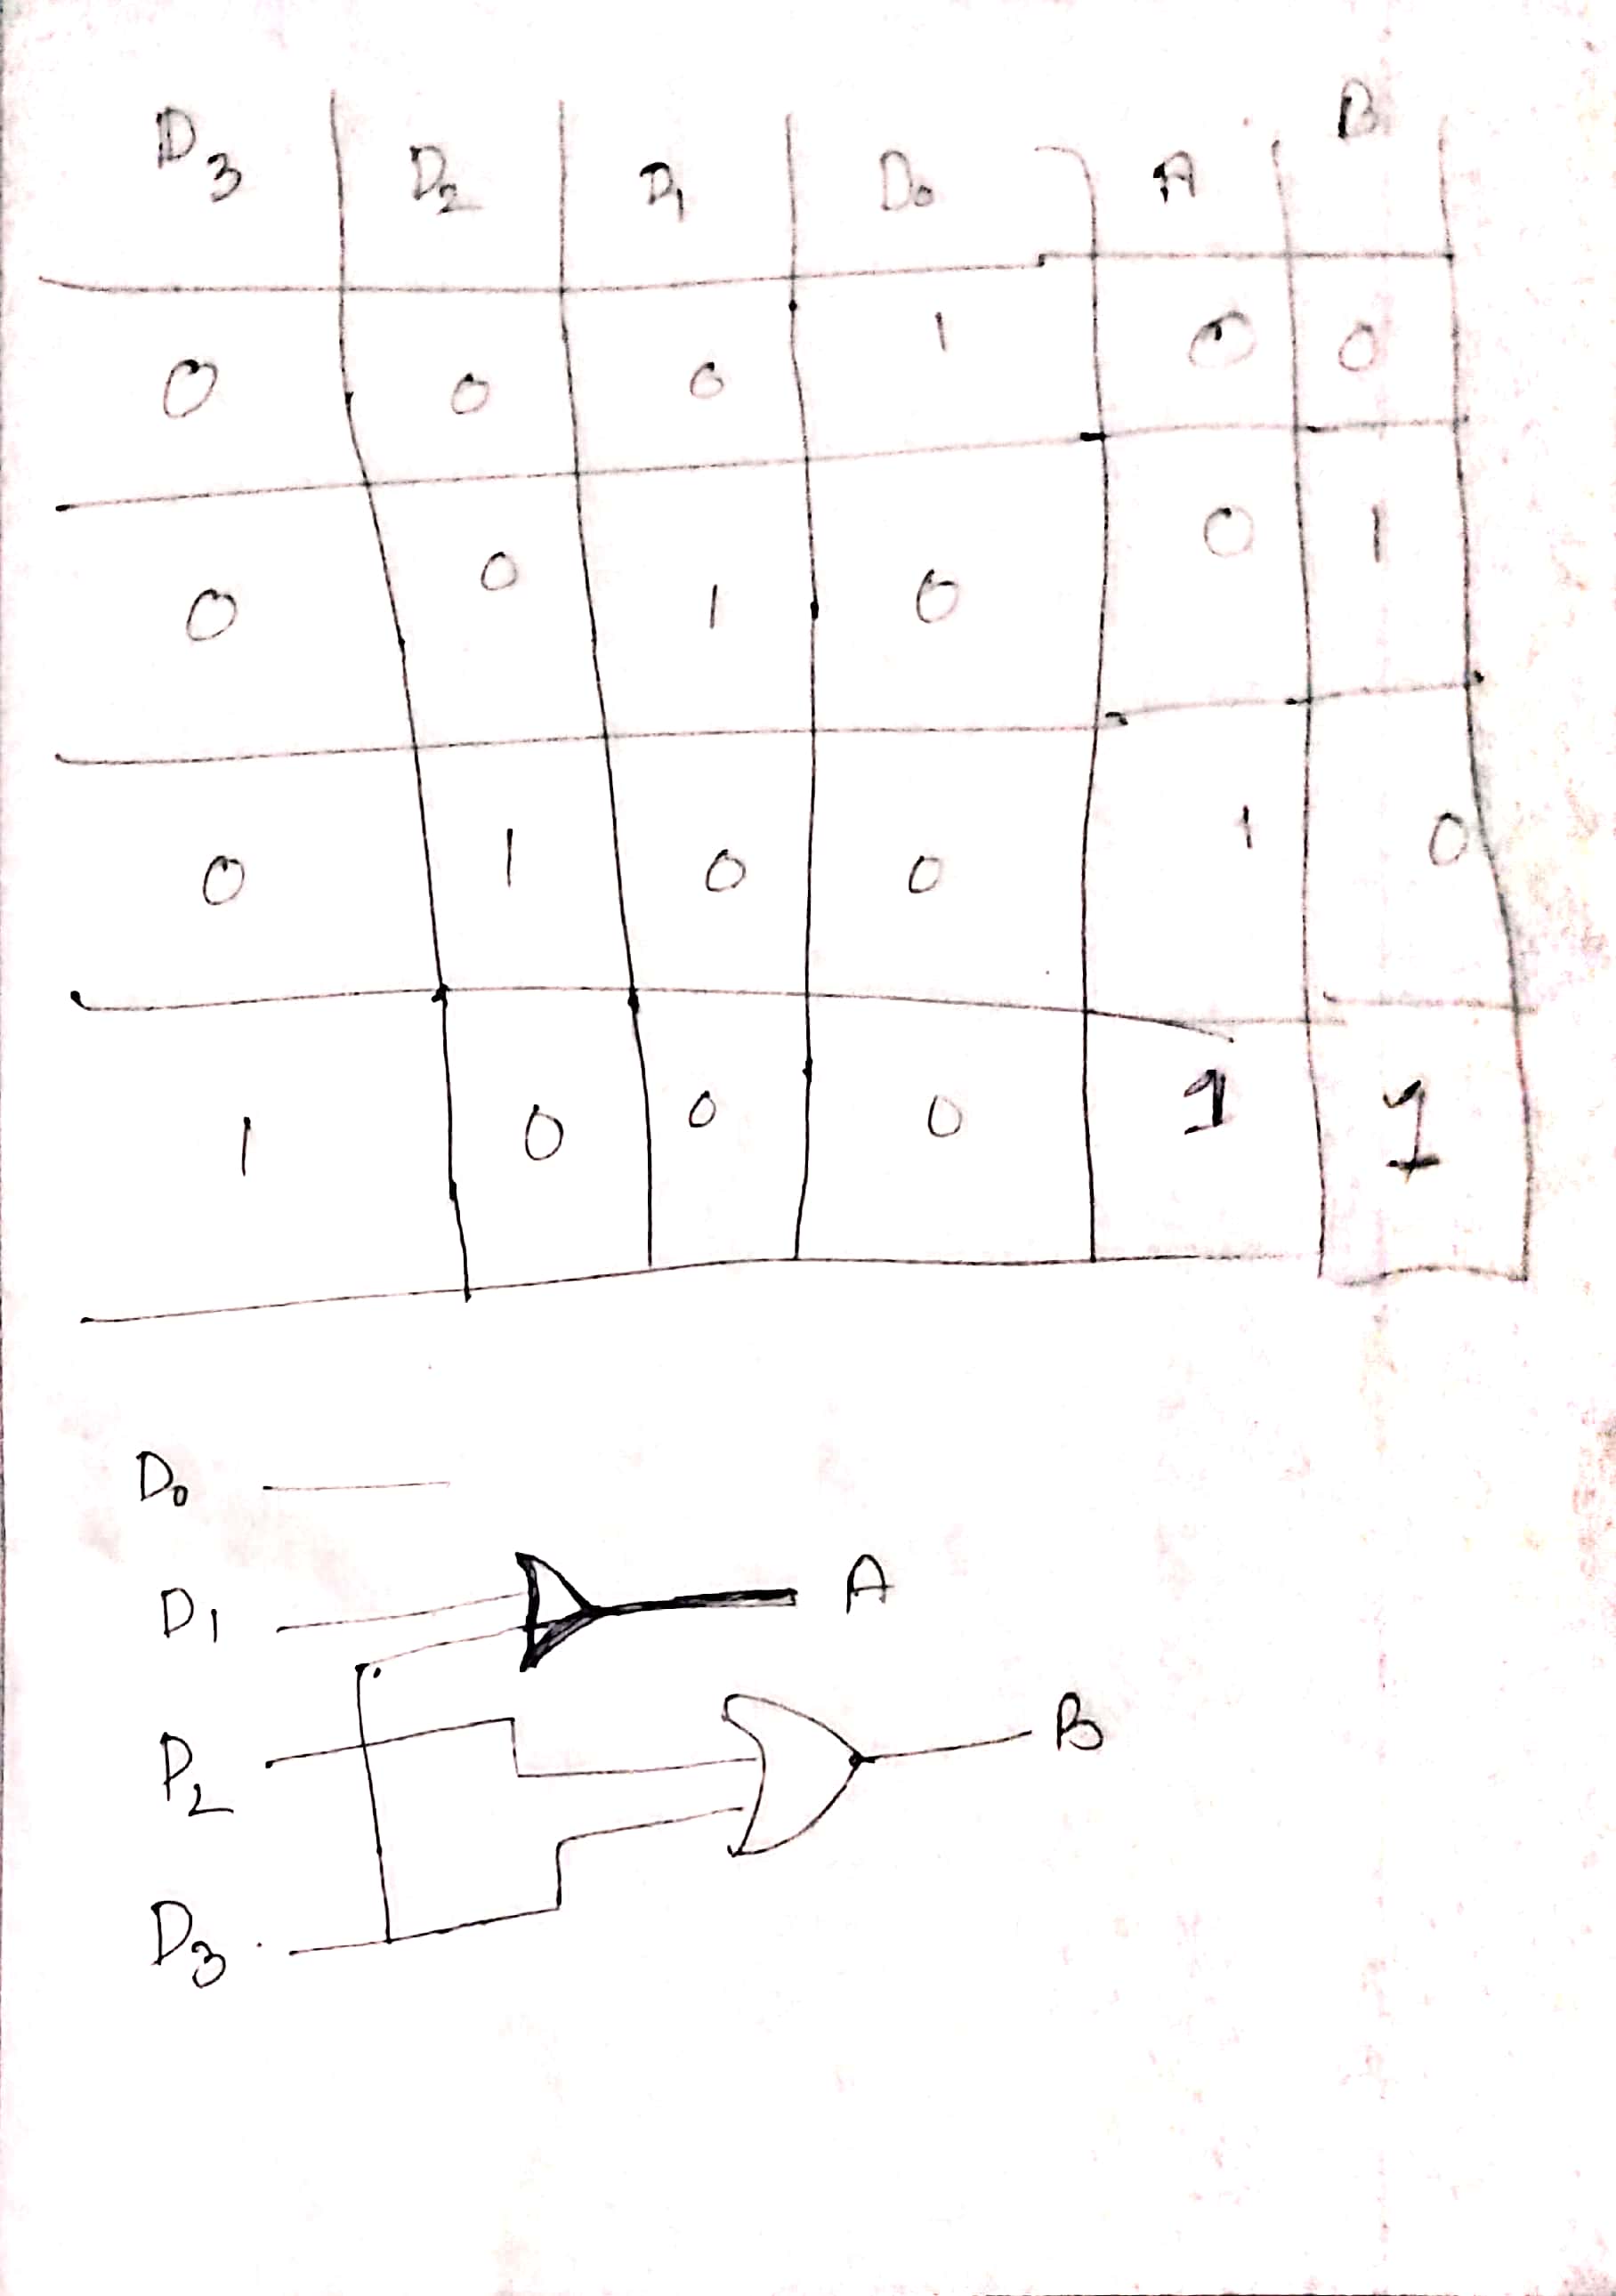 D3 D2 D1 D0 A B
0 0 0 1 0 0
0 0 1 0 0 1
0 1 0 0 1 0
1 0 0 0 1 1
D0
D1 A
D2 B
D3